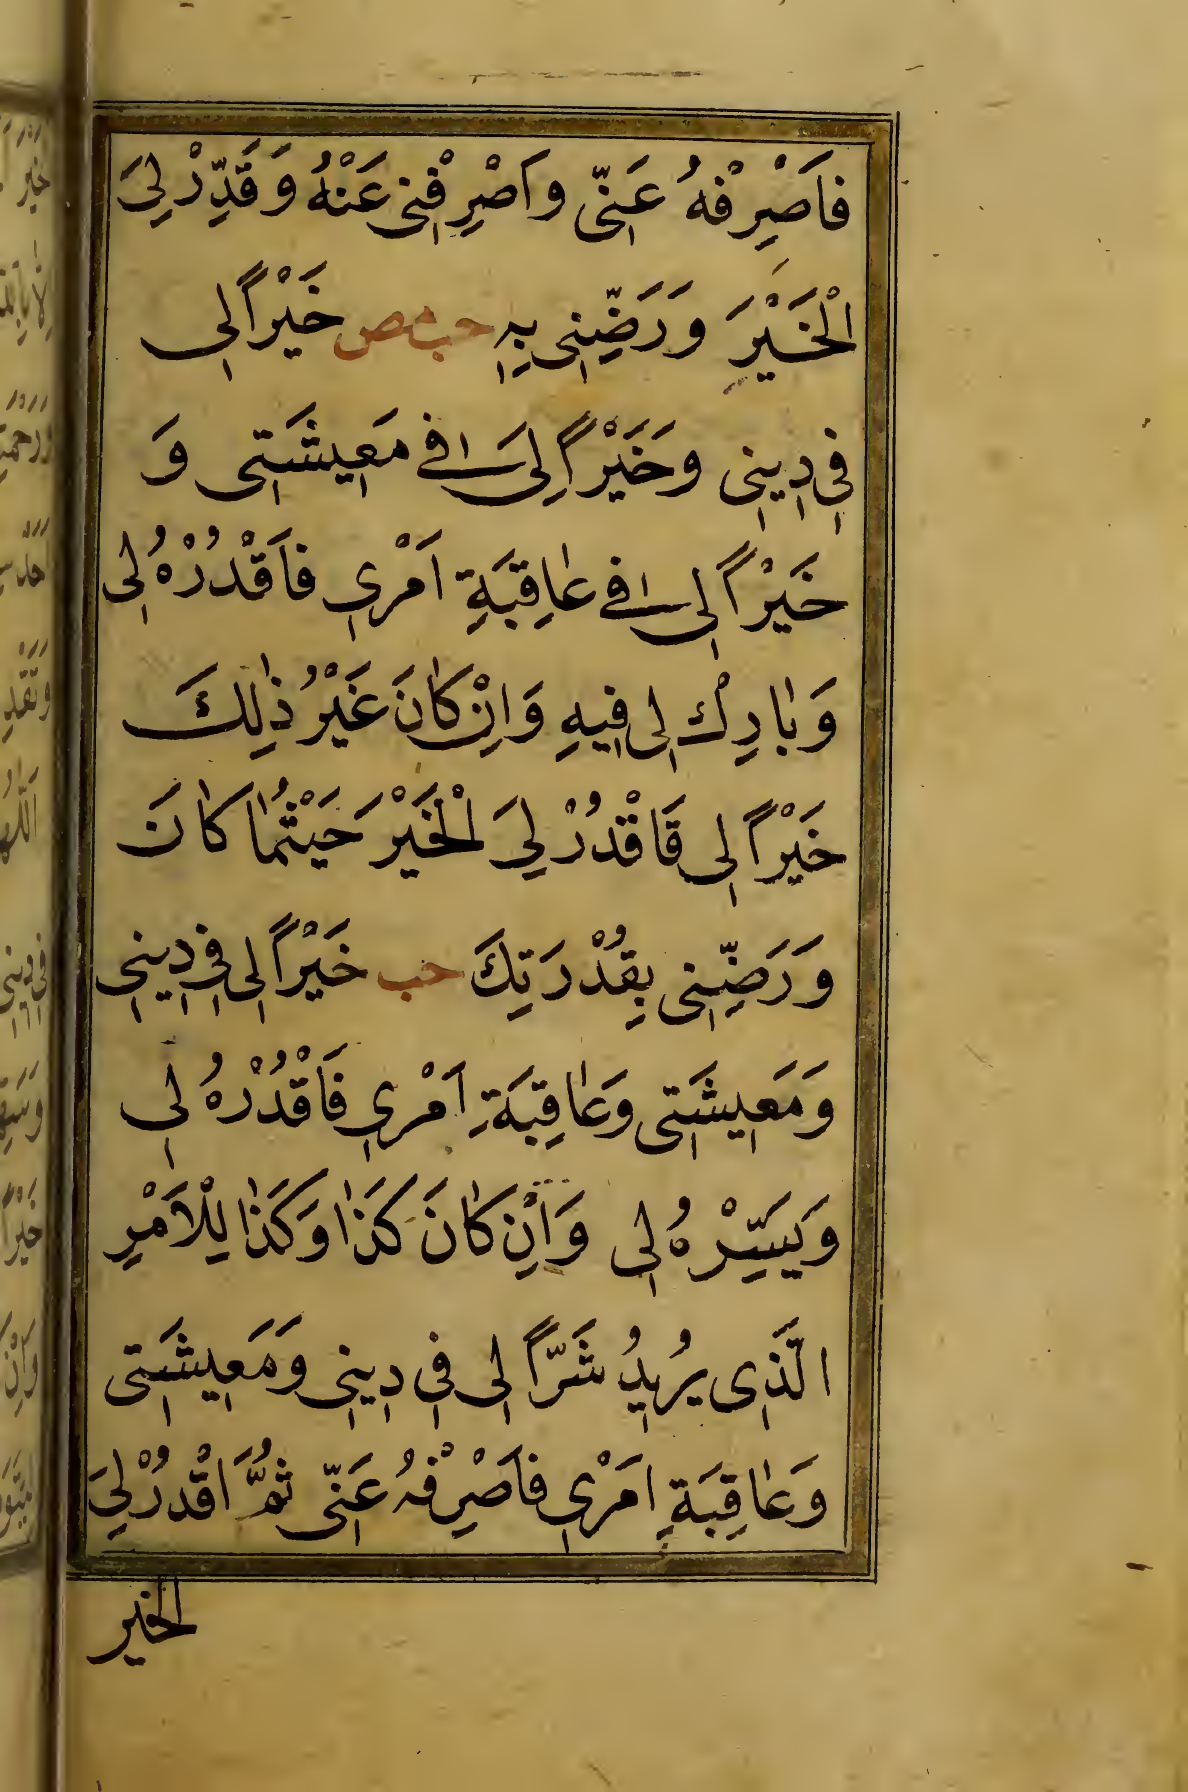 فَاصْرِفْهُ عَنّى وَاَصْرِفْنى عَنْهُ وَ قَدِّرْ لِىَ
الْخَيْرَ وَرَضِّنى بِهِ حب مص خَيْراً لى
فى دِينى وَخَيْراً لِىَ فى مَعِيشَتى وَ
خَيْراً لى فى عٰاقِبَةِ اَمْرى فَاَقْدُرْهُ لى
وَبٰارِكْ لى فِيهِ وَاِنْ كٰانَ غَيْرُ ذٰلِكَ
خَيْراً لى فَاقْدُرْ لِىَ الْخَيْرَ حَيْثُمٰا كٰانَ
وَرَضِّنى بِقُدْرَتِكَ حب خَيْراً لى فى دِينى
وَمَعِيشَتى وَعٰاقِبَةِ اَمْرى فَاَقْدُرْهُ لى
وَيَسِّرْهُ لى وَاِنْ كٰانَ كَذٰا وَكَذٰا لِلْاَمْرِ
الَّذى يُرِيدُ شَرّاً لى فى دِينى وَمَعِيشَتى
وَعٰاقِبَةِ اَمْرى فَاصْرِفْهُ عَنّى ثُمَّ اَقْدُرْ لِىَ
الخير